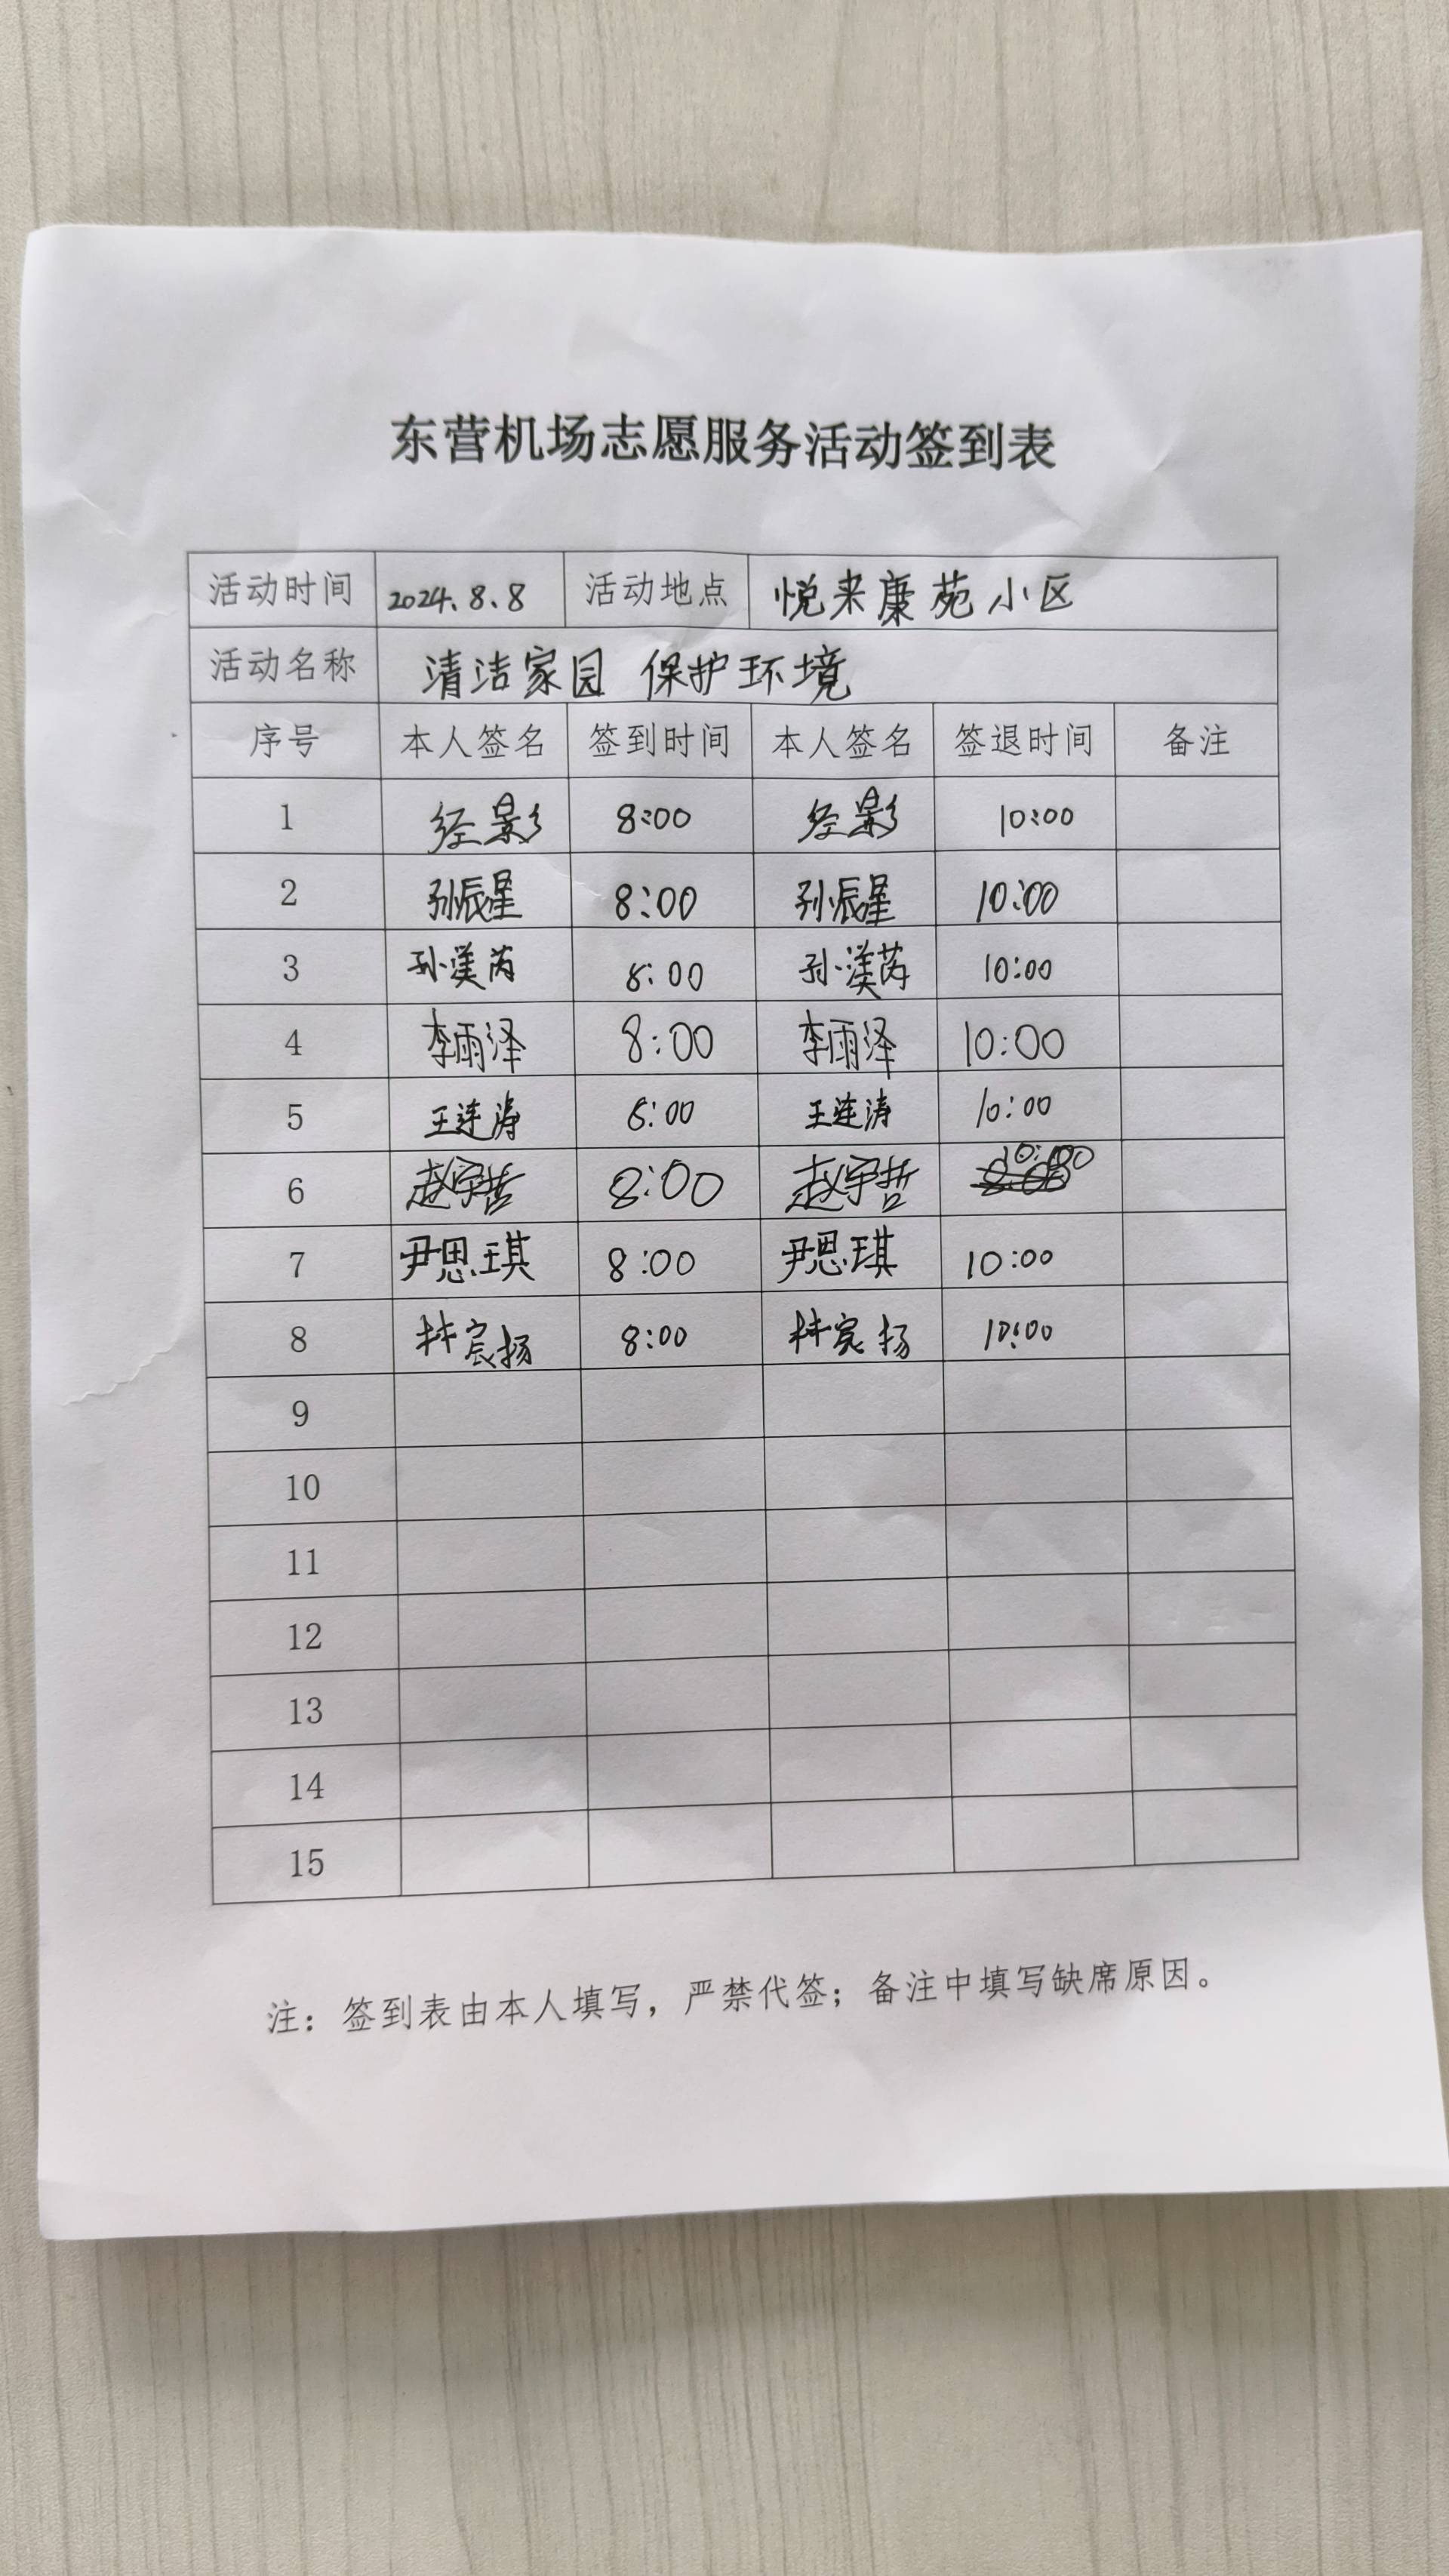 东营机场志愿服务活动签到表
活动时间 2024.8.8 活动地点 悦来康苑小区
活动名称 清洁家园 保护环境
序号 本人签名 签到时间 本人签名 签退时间 备注
1 经影 8:00 经影 10:00
2 孙辰星 8:00 孙辰星 10:00
3 孙漢芮 8:00 孙漢芮 10:00
4 李雨泽 8:00 李雨泽 10:00
5 王连涛 8:00 王连涛 10:00
6 赵宇哲 8:00 赵宇哲 10:00
7 尹思琪 8:00 尹思琪 10:00
8 林宸扬 8:00 林宸扬 10:00
9
10
11
12
13
14
15
注：签到表由本人填写，严禁代签；备注中填写缺席原因。